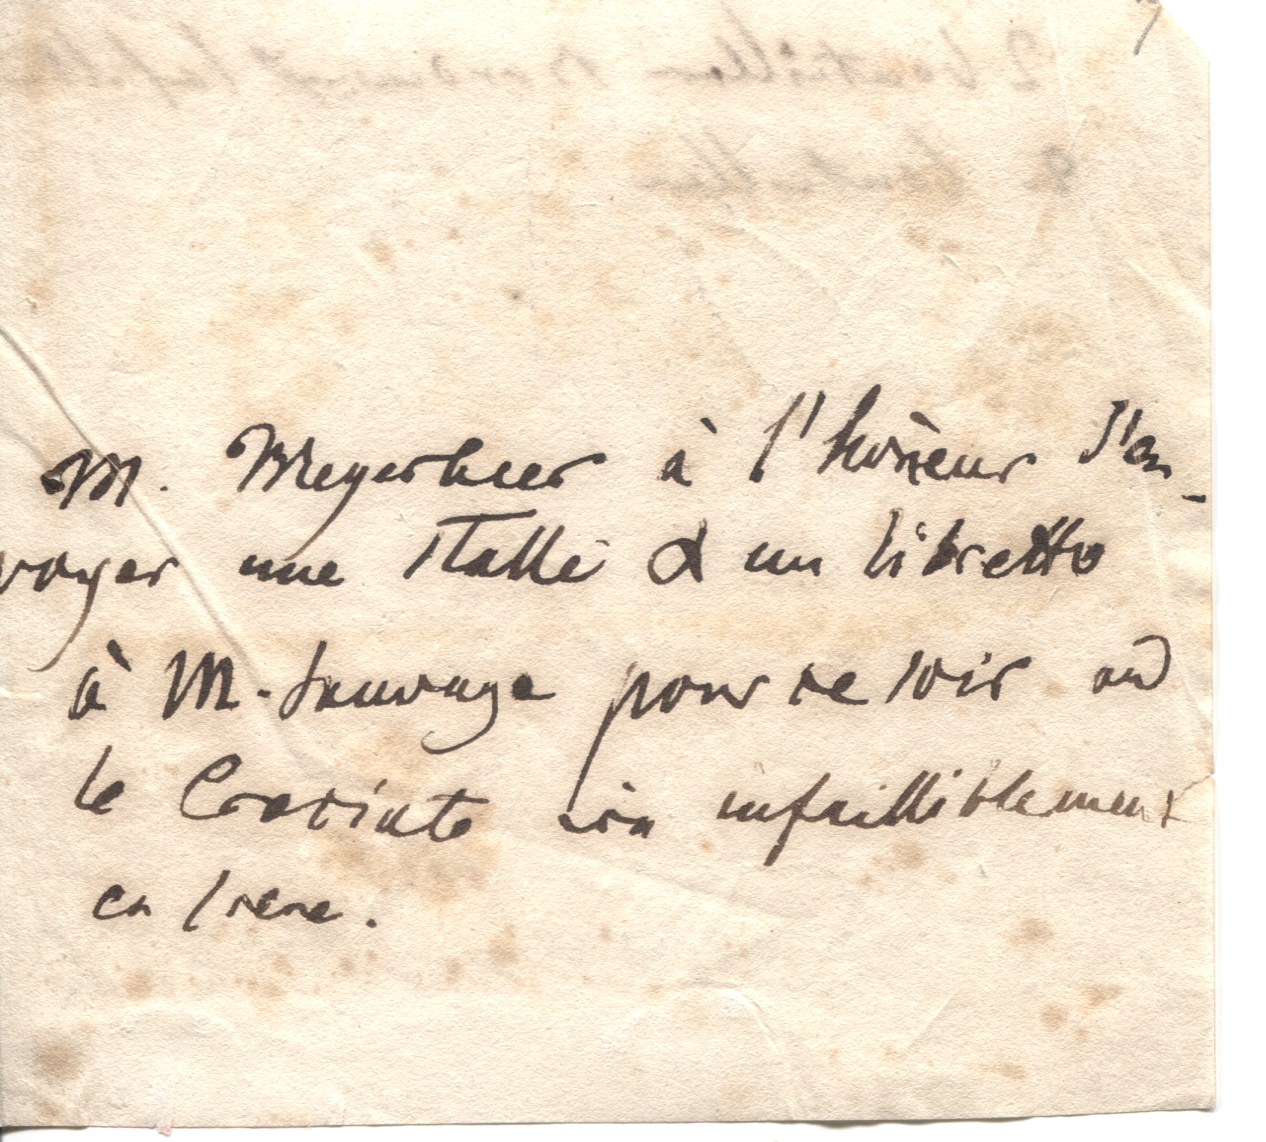 M. Meyerbeer à l'honeur d'en-
voyer une stalle & un libretto
à M. Sauvage pour ce soir où
le Crociato ira infailliblement
en scene.